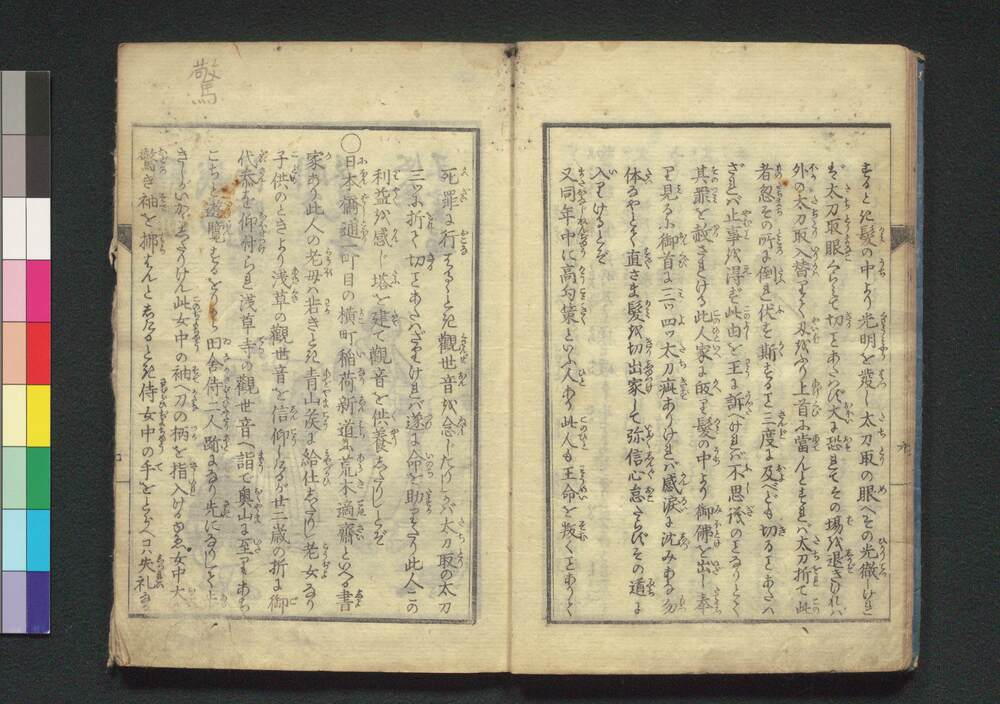 するとき髪の中より光明を發し太刀取の眼へその光徹しけれ
ば太刀取眼くらミて切ことあたハず大に恐れてその場を退きけれバ
外の太刀取入替りて刄をふり上首に當んとすれバ太刀折て此
者忽その所に倒れ伏を斯すること三度に及べども切ることあたハ
ざれバ止事を得ず此由を王に訴へけれバ不思議のことなりとて
其罪を赦されける此人家に皈り髪の中より御佛を出し奉
り見るに御首に二ツ四ツ太刀疵ありけれバ感涙に沈ミあな勿
体なやとて直さま髪を切出家して弥信心怠たらずその道に
入りけるとぞ
又同年中に高勾葉といへる人あり此人も王命を叛くことありて
驚
死罪に行るゝとき觀世音を念したりしかバ太刀取の太刀
三ツに折れて切ことあたハざりけれバ遂に命を助りたり此人この
利益を感じ塔を建て觀音を供養したりしとぞ
○日本橋通一町目の横町稲荷新道に荒木適齋といへる書
家あり此人の老母ハ若きとき青山家に給仕したりし老女なり
子供のときより淺草の觀世音を信仰しけるが廿二歳の折に御
代参を仰付られ淺草寺の觀世音へ詣で奥山に至りあち
こちと遊覧するをりから田舎侍二人跡になり先になりして
きたりしがいかゞしたりけん此女中の袖へ刀の柄を指入けるゆゑ女中大に
驚き袖を挪はんとしたるとき侍女中の手をとらへコハ失礼